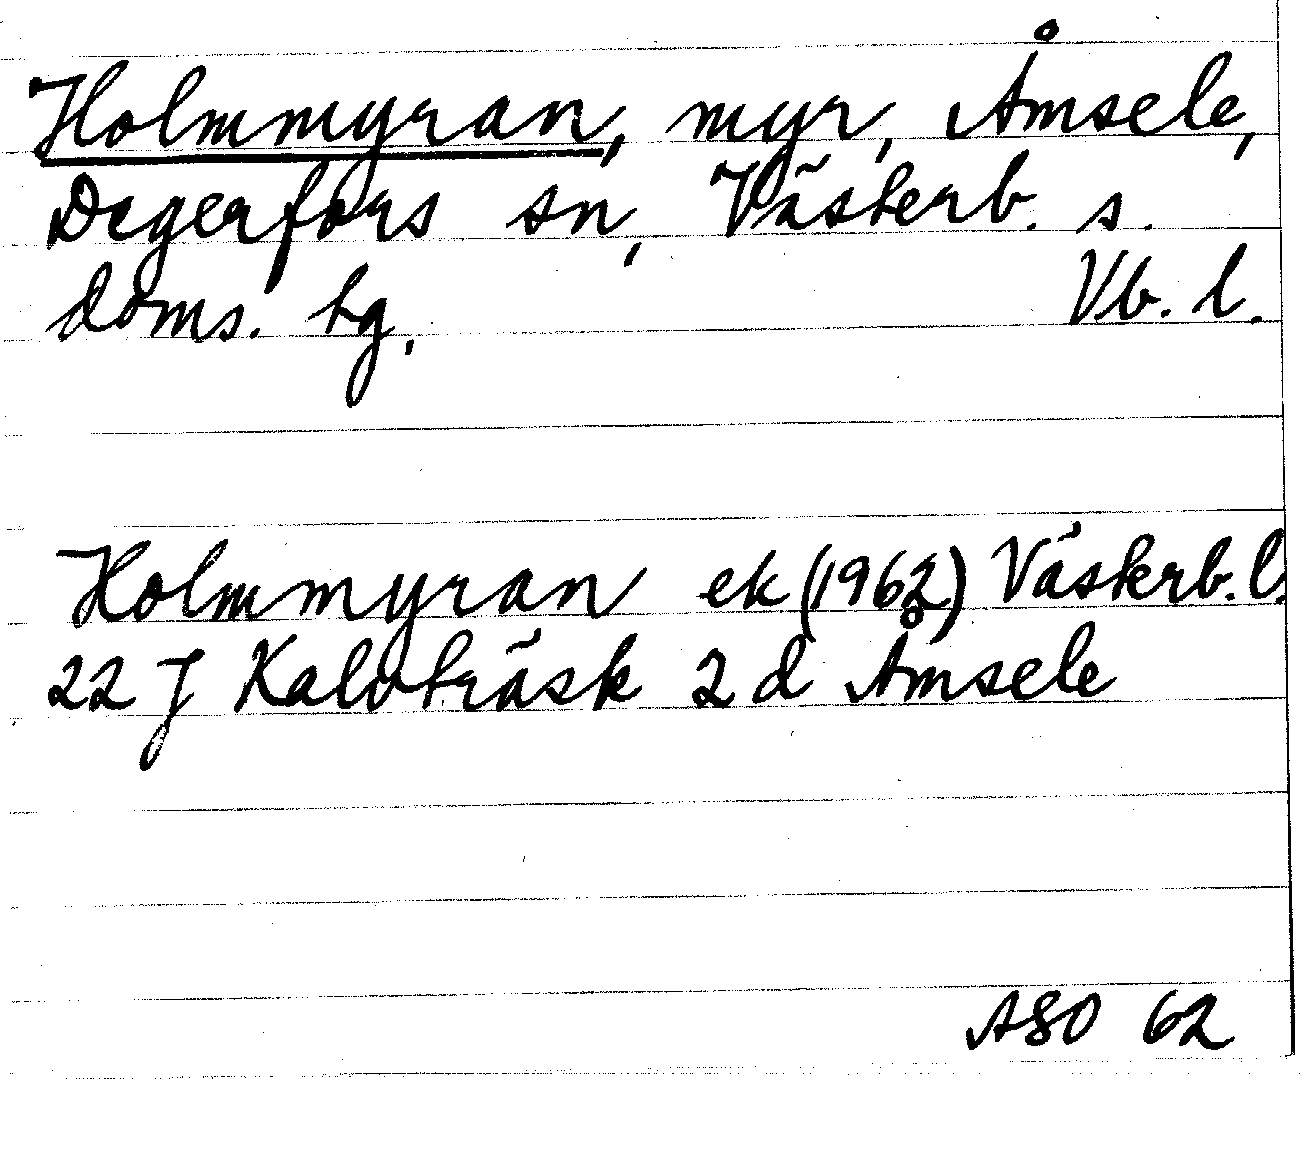 Holmmyran, myr, Åmsele,
Degerfors sn, Västerb. s.
doms. tg, Vb. l.
Holmmyran ek (1962) Västerb. l.
22 J Kalvträsk 2 d Åmsele
ASO 62